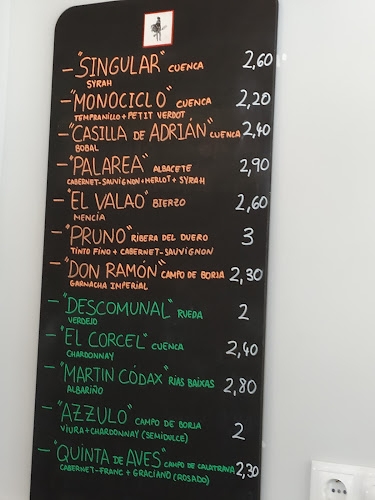 - "SINGULAR" CUENCA 2,60
SYRAH
- "MONOCICLO" CUENCA 2,20
TEMPRANILLO + PETIT VERDOT
- "CASILLA DE ADRIÁN" CUENCA 2,40
BOBAL
- "PALAREA" ALBACETE 2,90
CABERNET-SAUVIGNON+MERLOT+SYRAH
- "EL VALAO" BIERZO 2,60
MENCÍA
- "PRUNO" RIBERA DEL DUERO 3
TINTO FINO + CABERNET-SAUVIGNON
- "DON RAMÓN" CAMPO DE BORJA 2,30
GARNACHA IMPERIAL
- "DESCOMUNAL" RUEDA 2
VERDEJO
- "EL CORCEL" CUENCA 2,40
CHARDONNAY
- "MARTIN CÓDAX" RÍAS BAIXAS 2,80
ALBARIÑO
- "AZZULO" CAMPO DE BORJA 2
VIURA+CHARDONNAY (SEMIDULCE)
- "QUINTA DE AVES" CAMPO DE CALATRAVA 2,30
CABERNET-FRANC + GRACIANO (ROSADO)